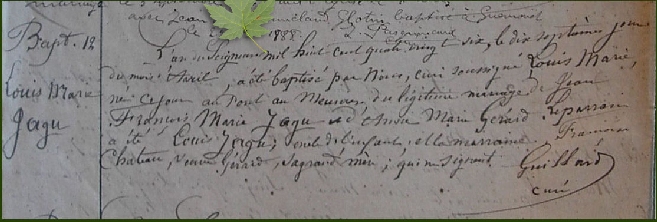 avec Jean
1888
Bapt. 12
Louis Marie
Jagu
L'an du Seigneur mil huit cent quatre vingt six, le dix septième jour
du mois d'Avril, a été baptisé par Nous, curé soussigné Louis Marie,
né ce jour au Pont au Meunier, du légitime mariage de Jean
François Marie Jagu et d'Anne Marie Gérard. Le parrain
a été Louis Jagu, oncle de l'enfant, et la marraine Françoise
Chateau, veuve Gérard, sa grand mère, qui ne signent.
Guillard
curé